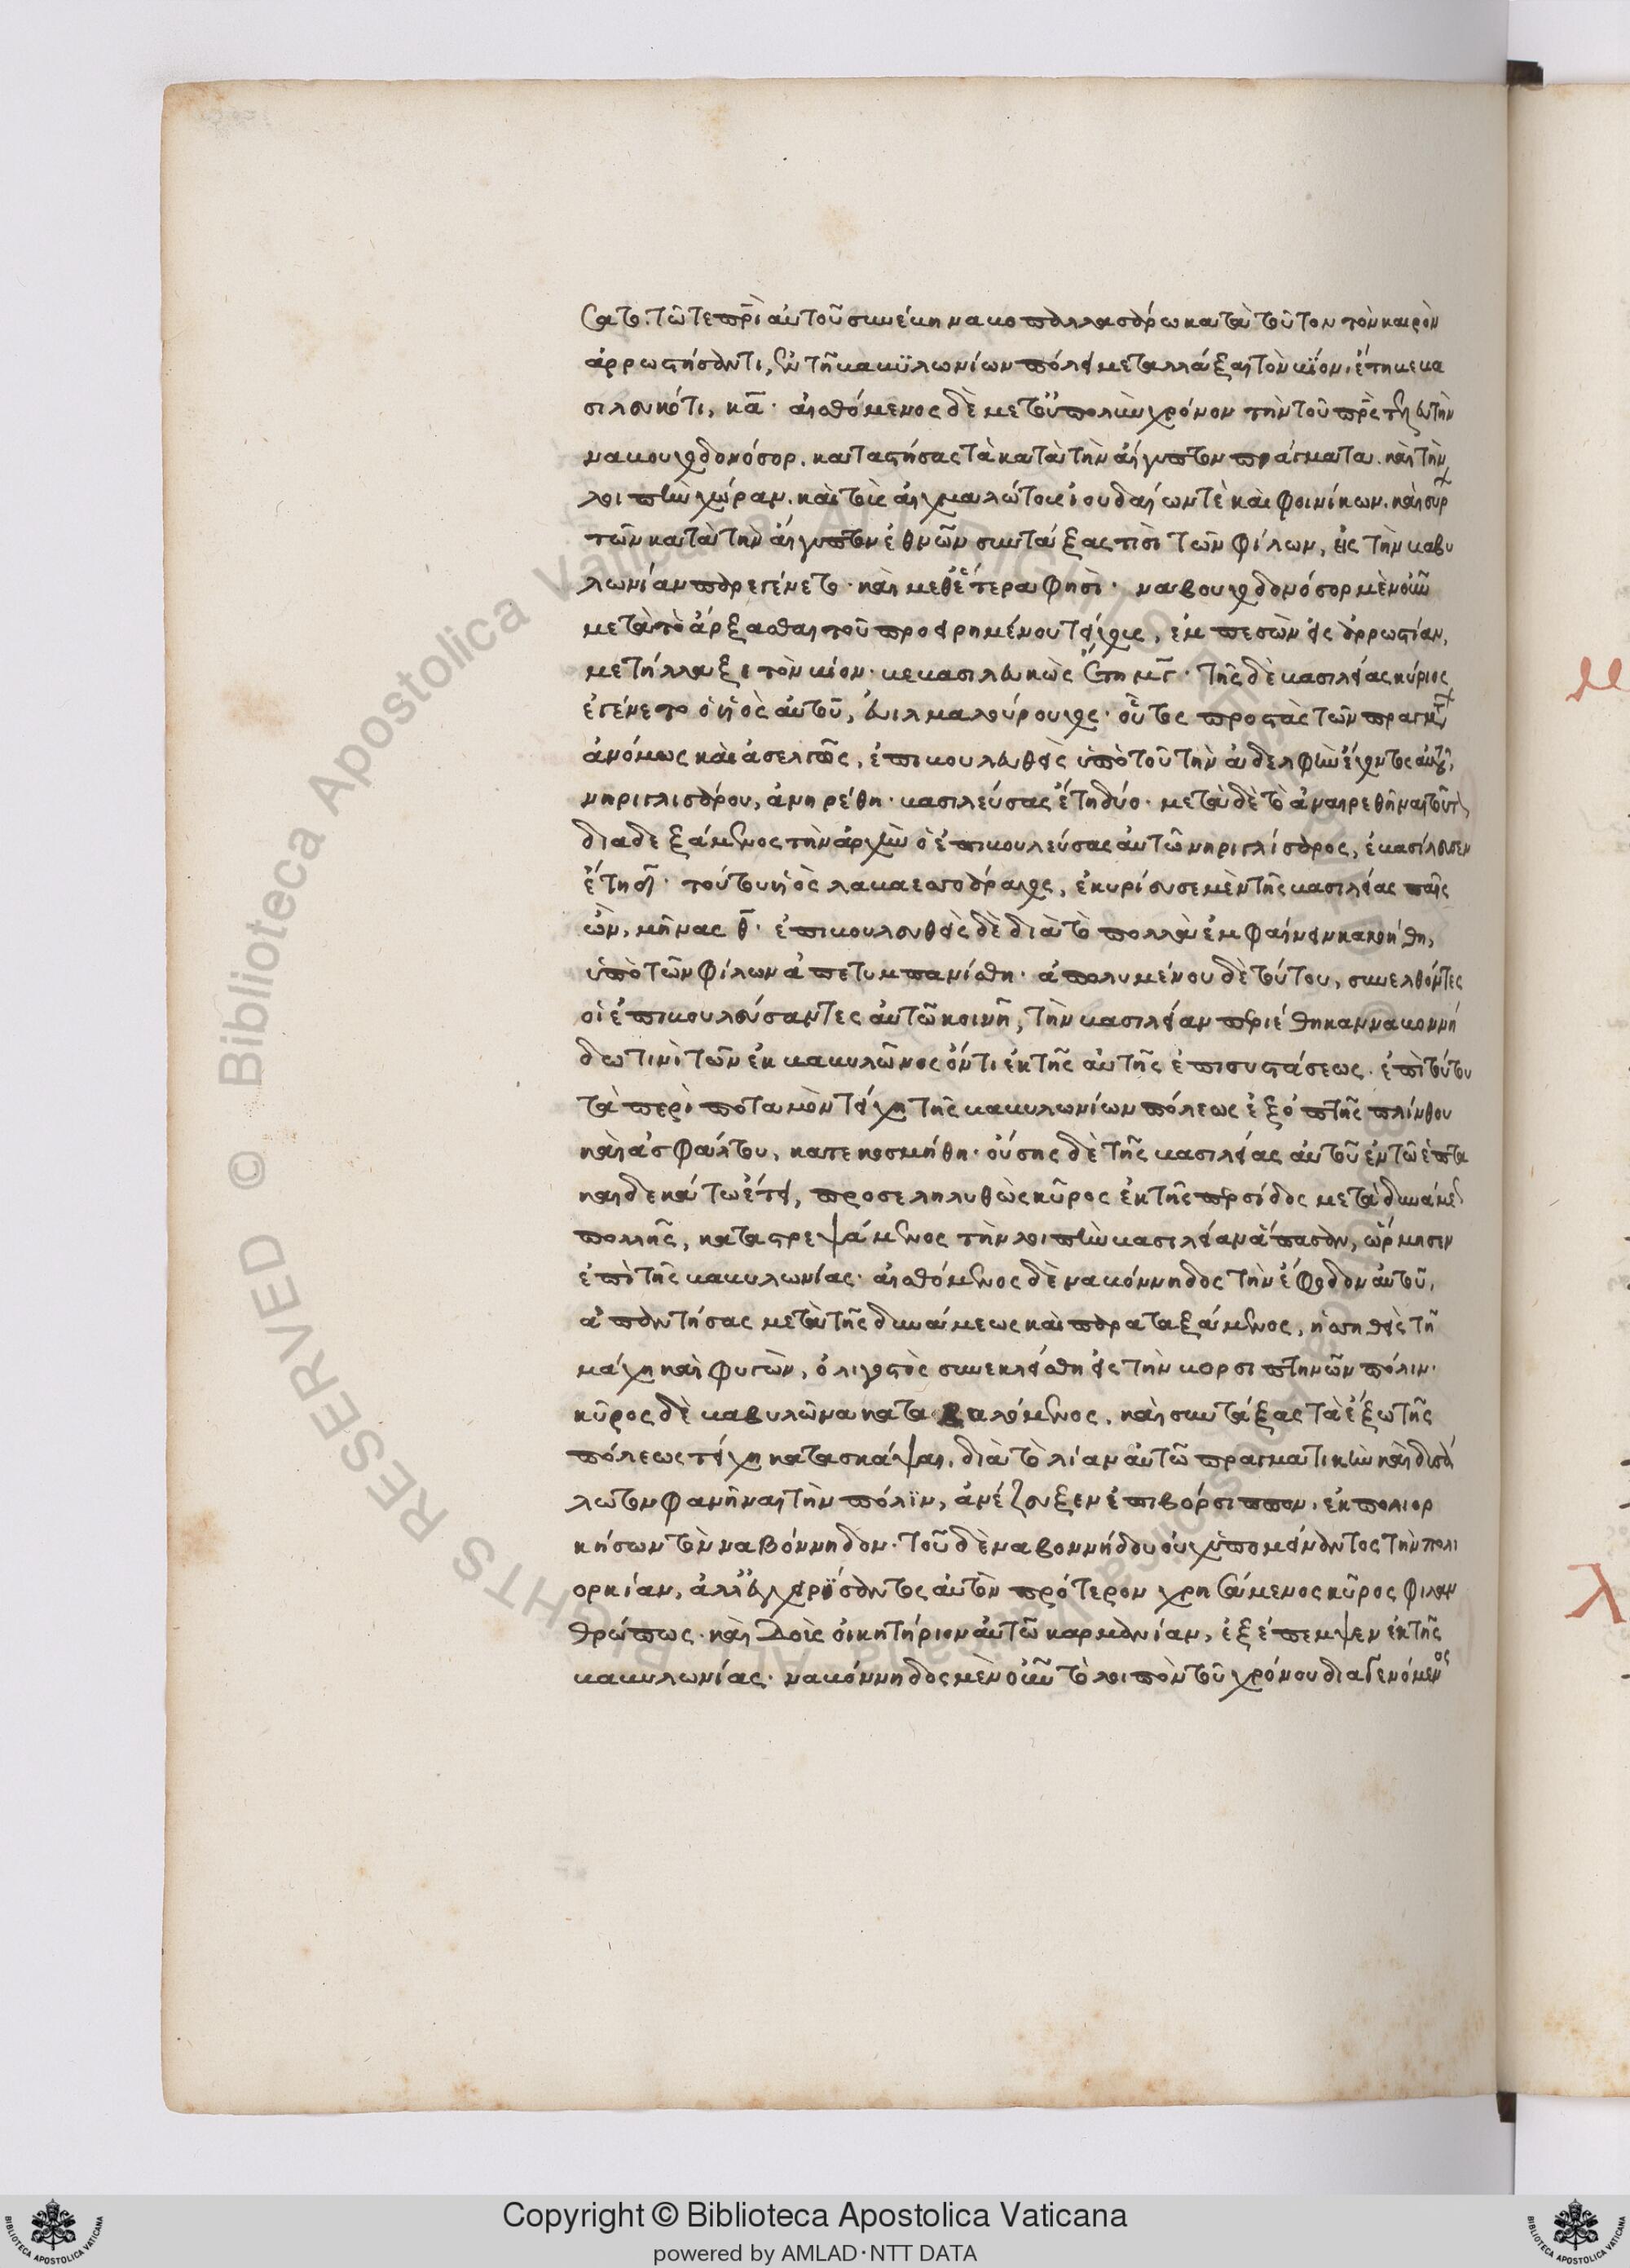 σατο. τῶ τε πρὶ αὐτοῦ συνέβη ναβοπαλλασάρω κατὰ τοῦτον τὸν καιρὸν
ἀρρωστήσαντι, ἐν τῆ βαβϋλωνίων πόλει μεταλλάξαι τὸν βίον. ἔτη βεβα
σιλευκότι, κα̅. αἰσθόμενος δὲ μετ' οὐ πολὺν χρόνον τὴν τοῦ πρς τελευτὴν
ναβουχοδονόσορ. καταστήσας τὰ κατὰ τὴν αἴγυπτον πράγματα. καὶ τὴν
λοιπὴν χώραν. καὶ τοὺς αἰχμαλώτους ἰουδαίων τὲ καὶ φοινίκων. καὶ συρ
τῶν κατὰ τὴν αἴγυπτον ἐθνῶν συντάξας τισὶ τῶν φίλων, εἰς τὴν βαβυ
λωνίαν παρεγένετο. καὶ μεθ' ἕτερα φησὶ. ναβουχοδονόσορ μὲν οὖν
μετὰ τὸ ἄρξασθαι τοῦ προειρημένου τείχους, ἐμπεσὼν εἰς ἀρρωστίαν,
μετήλλαξε τὸν βίον. βεβασιλευκὼς ἔτη μγ̅. τῆς δὲ βασιλείας κύριος
ἐγένετο ὁ ϋἱὸς αὐτοῦ, εὐιλμαλούρουχος. οὗτος προστὰς τῶν πραγμτ
ἀνόμως καὶ ἀσελγῶς, ἐπιβουλευθεὶς ὑπὸ τοῦ τὴν ἀδελφὴν ἔχοντος αὐτοῦ,
νηριγλισάρου, ἀνηρέθη. βασιλεύσας ἔτη δύο. μετὰ δὲ τὸ ἀναιρεθῆναι τοῦτ
διαδεξάμενος τὴν ἀρχὴν ὁ ἐπιβουλεύσας αὐτῶ νηριγλίσαρος, ἐβασίλευσεν
ἔτη δ̅. τούτου υἱὸς λαβαεσσοάραχος, ἐκυρίευσε μὲν τῆς βασιλείας παῖς
ὢν, μῆνας θ̅. ἐπιβουλευθεὶς δὲ διὰ τὸ πολλὰ ἐμφαίνειν κακοήθη,
ὑπὸ τῶν φίλων ἀπετυμπανίσθη. ἀπολυμένου δὲ τούτου, συνελθόντες
οἱ ἐπιβουλεύσαντες αὐτῶ κοινῆ, τὴν βασιλείαν πριέθηκαν ναβοννή
δω τινὶ τῶν ἐκ βαβυλῶνος ὄντι ἐκ τῆς αὐτῆς ἐπισυστάσεως. ἐπὶ τούτου
τὰ περὶ ποταμὸν τείχη τῆς βαβυλωνίων πόλεως ἐξ ὀπτῆς πλίνθου
καὶ ἀσφάλτου, κατεκοσμήθη. οὔσης δὲ τῆς βασιλείας αὐτοῦ ἐν τῶ ἑπτα
καιδεκάτω ἔτει, προσεληλυθὼς κῦρος ἐκ τῆς πρσίδος μετὰ δυνάμε
πολλῆς, καταστρεψάμενος τὴν λοιπὴν βασιλείαν ἅπασαν, ὥρμησεν
ἐπὶ τῆς βαβυλωνίας. αἰσθόμενος δὲ ναβόννηδος τὴν ἔφοδον αὐτοῦ,
ἀπαντήσας μετὰ τῆς δυνάμεως καὶ παραταξάμενος, ἡσσηθεὶς τῆ
μάχη καὶ φυγὼν, ὀλιγοστὸς συνεκλείσθη εἰς τὴν βορσιππηνῶν πόλιν.
κῦρος δὲ βαβυλῶνα καταβαλόμενος, καὶ συντάξας τὰ ἔξω τῆς
πόλεως τείχη κατασκάψαι. διὰ τὸ λίαν αὐτῶ πραγματικὴν καὶ δυσά
λωτον φανῆναι τὴν πόλϊν, ἀνέζευξεν ἐπι βόρσιππον, ἐκπολιορ
κήσων τὸν ναβόννηδον. τοῦ δὲ ναβοννήδου οὐχ ὑπομείναντος τὴν πολι
ορκίαν, ἀλλ' ἐγχειρίσαντος αὐτὸν πρότερον χρησάμενος κῦρος φιλαν
θρώπως. καὶ δοὺς οἰκητήριον αὐτῶ καρμανίαν, ἐξέπεμψεν ἐκ τῆς
βαβυλωνίας. ναβόννηδος μὲν οὖν τὸ λοιπὸν τοῦ χρόνου διαγενόμενος